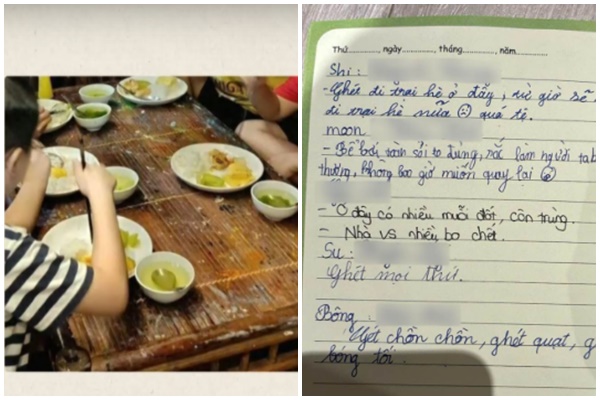 Thứ............, ngày............, tháng............, năm............
Shi :
- Ghét đi trại hè ở đây, từ giờ sẽ
đi trại hè nữa ☹ quá tệ.
moon
- Bể bơi toàn sỏi to đùng, rắc làm người ta b
thương, không bao giờ muốn quay lại ☹
- Ở đây có nhiều muỗi đốt, côn trùng.
- Nhà vs nhiều bọ chết.
Su :
Ghét mọi thứ.
Bông :
Ghét chồn chồn, ghét quạt, g
bóng tối.